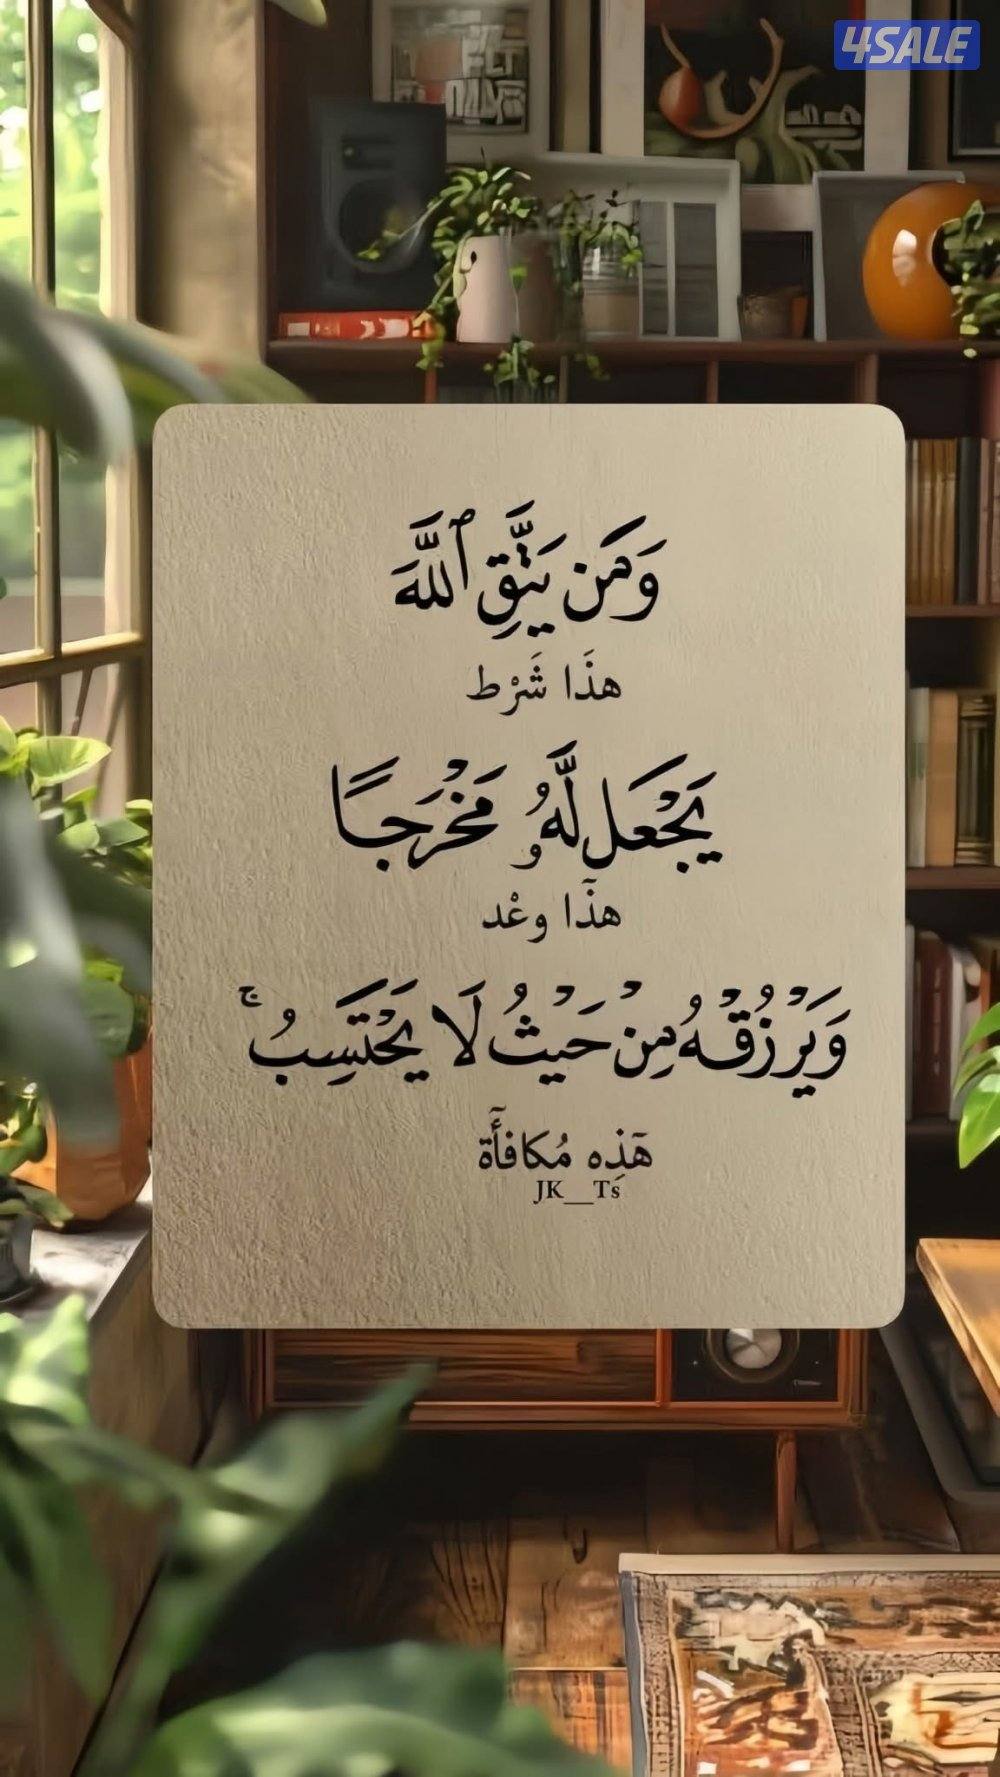 4SALE
وَمَن يَتَّقِ ٱللَّهَ
هذَا شَرْط
يَجْعَل لَّهُۥ مَخْرَجًا
هذَا وعْد
وَيَرْزُقْهُ مِنْ حَيْثُ لَا يَحْتَسِبُ ۚ
هَذِه مُكافأَة
JK__Ts